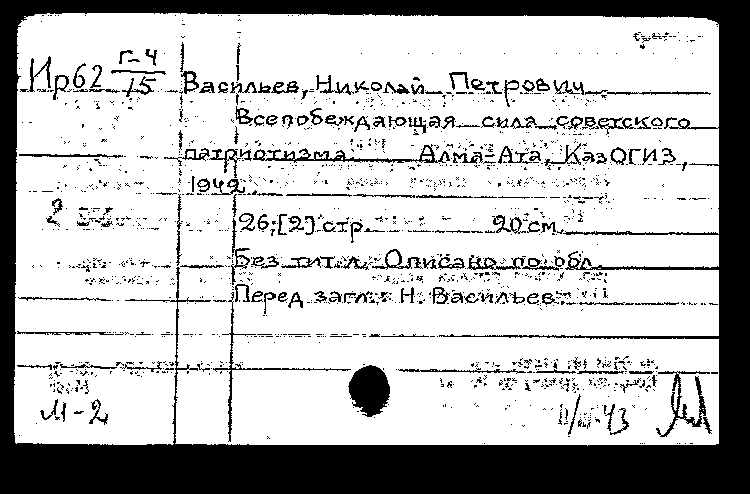 Ир62 Г-4/15 Васильев, Николай Петрович
Всепобеждающая сила советского
патриотизма. Алма-Ата, КазОГИЗ,
1942.
2 26;[2] стр. 20 см.
Без тит. л. Описано по обл.
Перед загл.: Н. Васильев
М-2